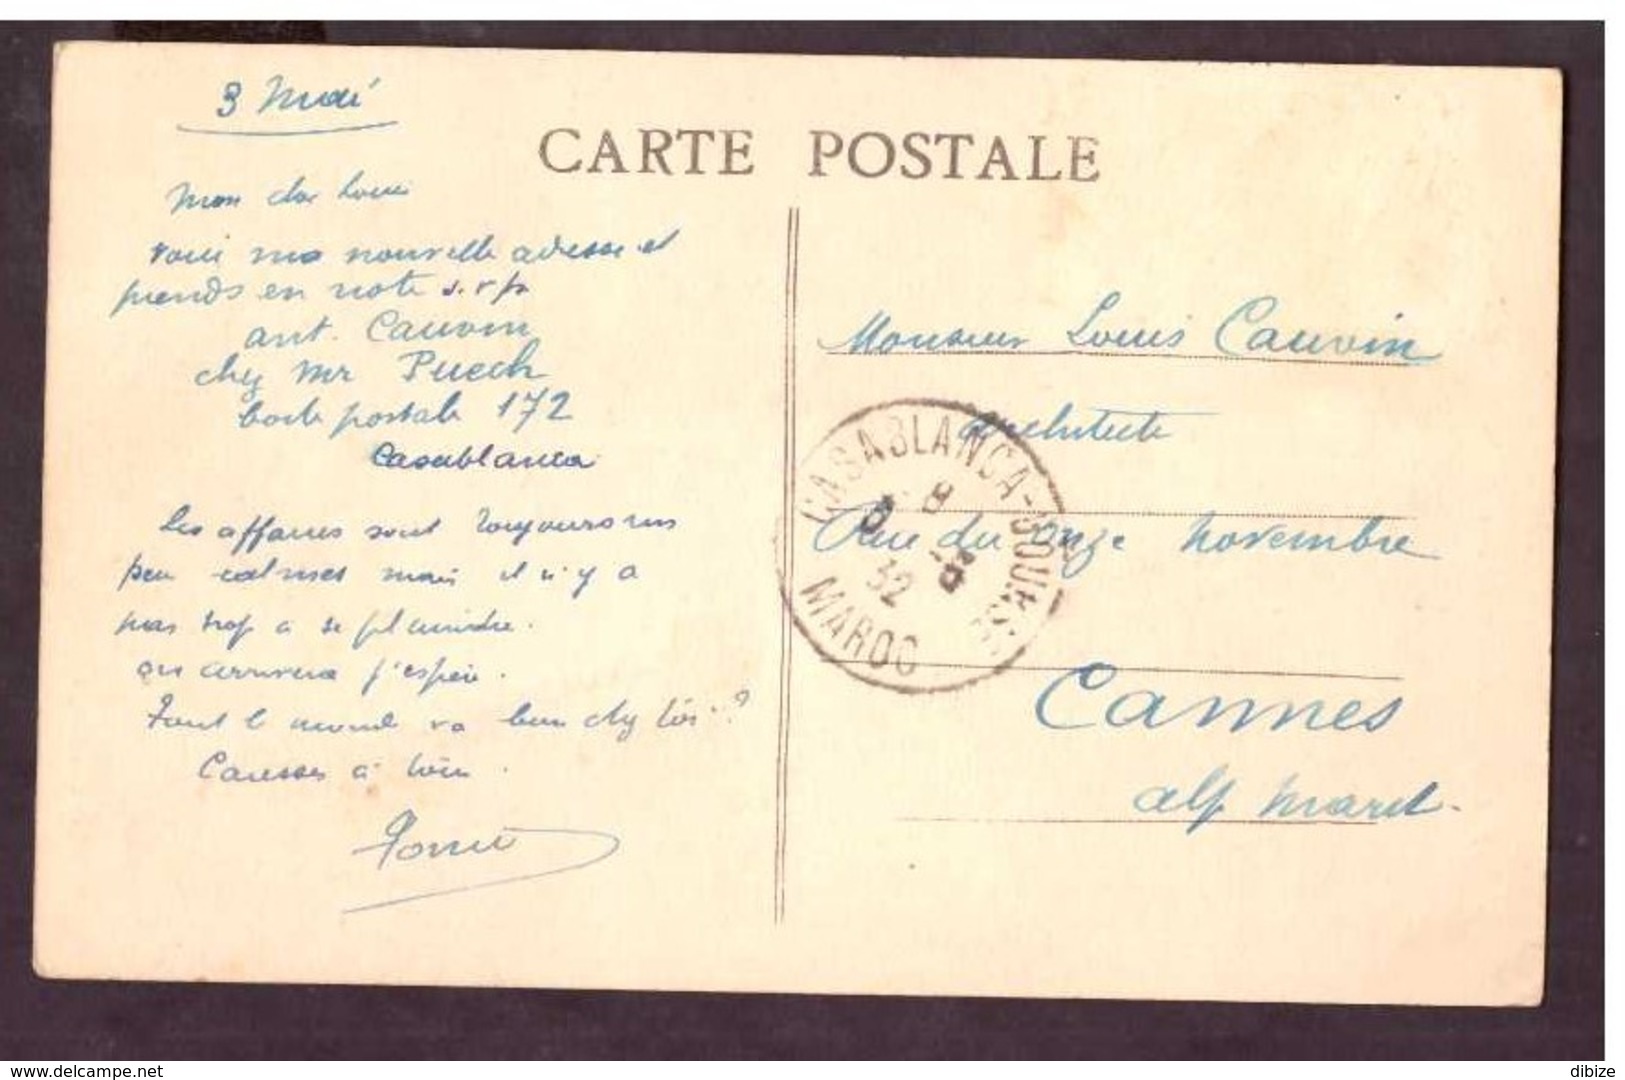 3 Mai
CARTE POSTALE
Mon cher Louis
voici ma nouvelle adresse et
prends en note s.v.p.
ant. Cauvin
chez Mr Puech
boite postale 172
Casablanca
Les affaires sont toujours un
peu calmes mais il n'y a
pas trop à se plaindre.
on arrivera j'espère.
Tout le monde va bien chez toi ?
Caresses à tous.
Monsieur Louis Cauvin
Architecte
Rue du Onze Novembre
Cannes
alp Marit.
CASABLANCA-BOURSE
8
32
MAROC
delcampe.net
dibize